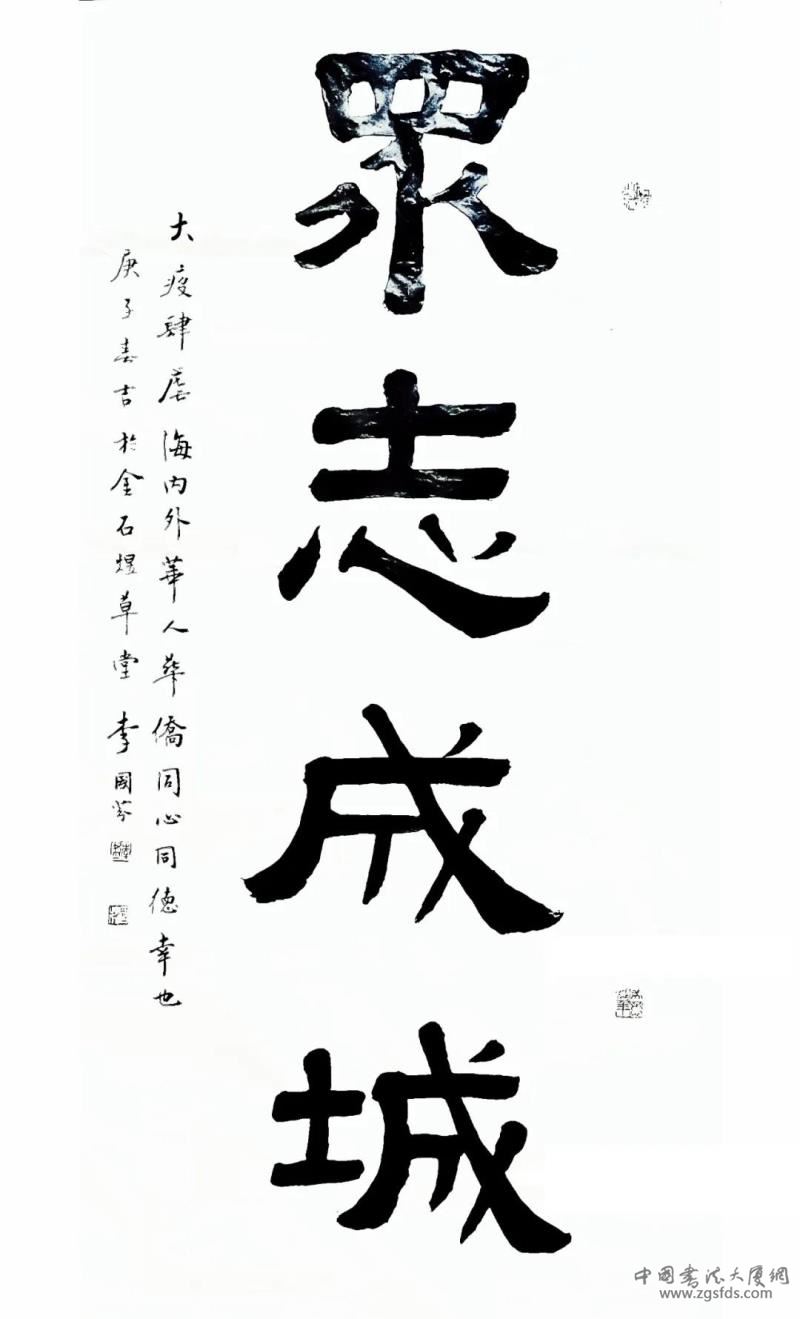 眾志成城
大疫肆虐海内外華人華僑同心同德幸也
庚子春吉於金石煜草堂李國芬
中國書法大厦網
www.zgsfds.com